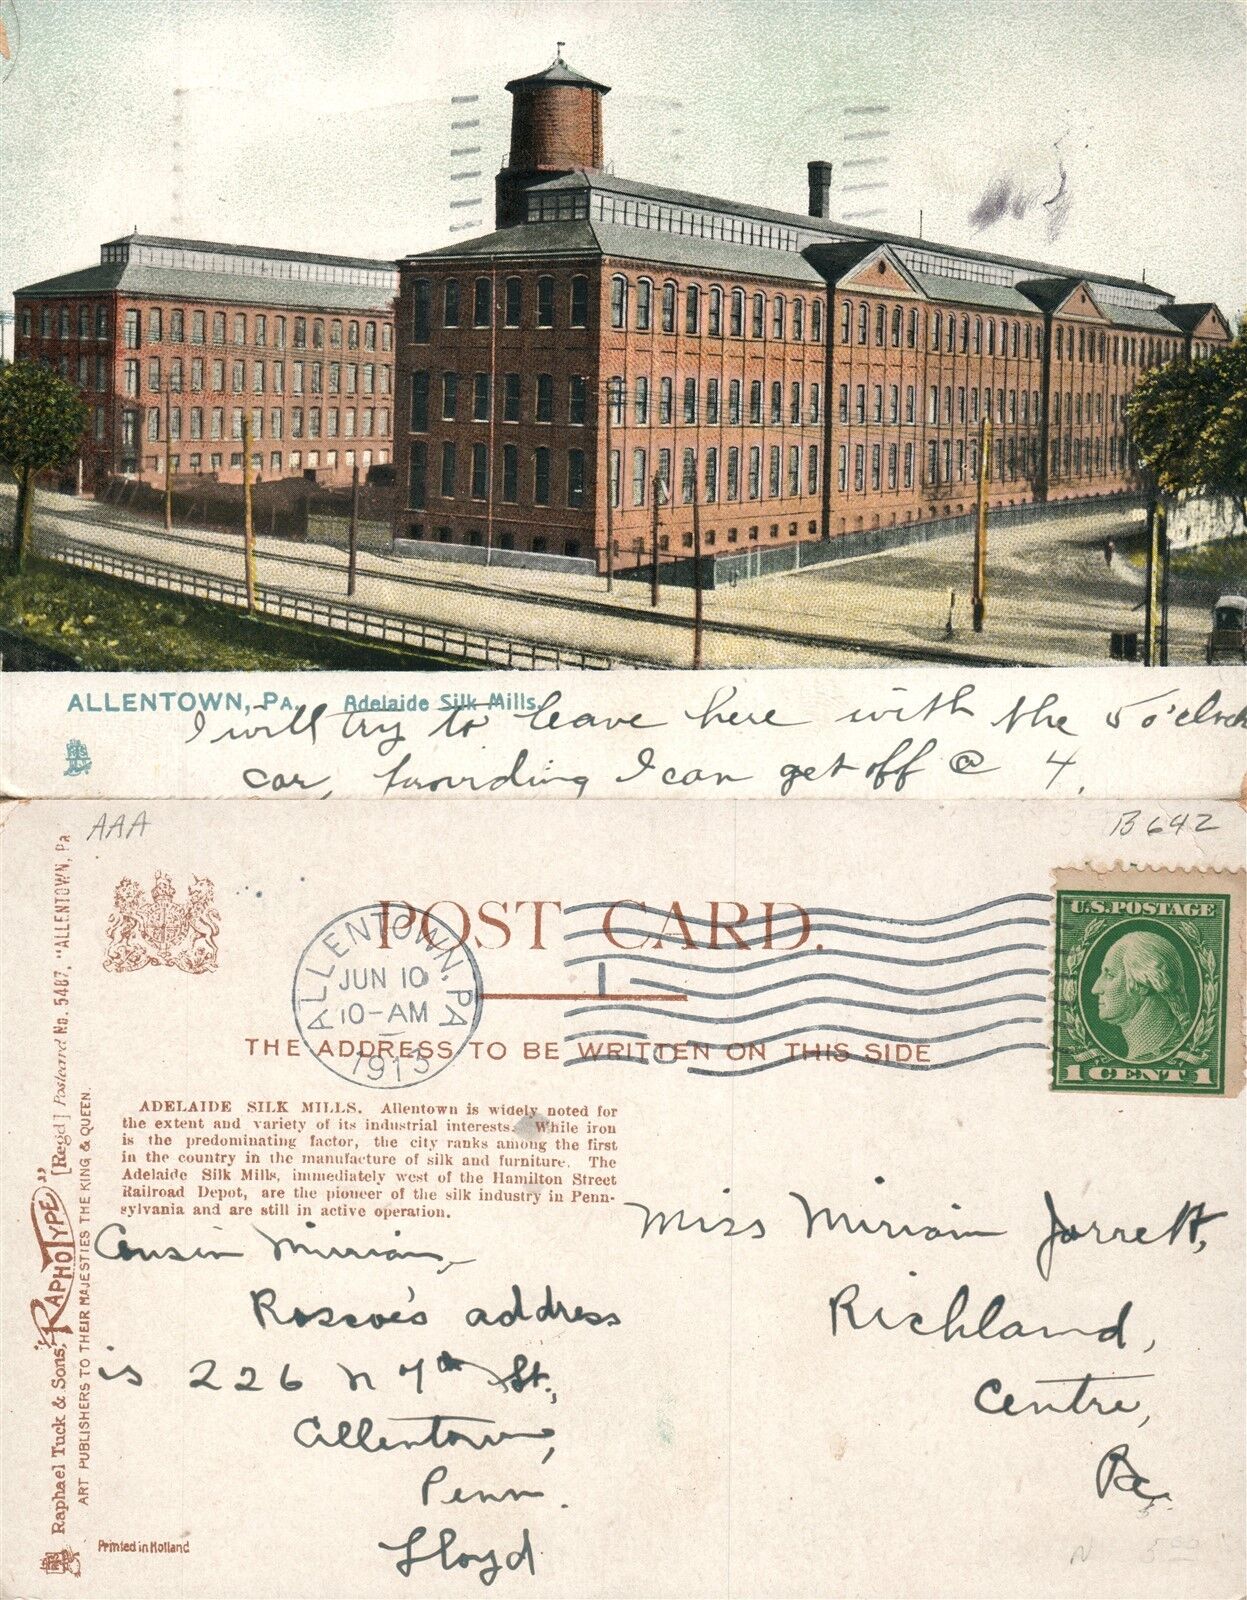 ALLENTOWN, PA. Adelaide Silk Mills.
I will try to leave here with the 5 o'clock
car, providing I can get off @ 4.
AAA
B642
POST CARD.
ALLENTOWN, PA
JUN 10
10-AM
1913
U.S. POSTAGE
1 CENT 1
THE ADDRESS TO BE WRITTEN ON THIS SIDE
ADELAIDE SILK MILLS. Allentown is widely noted for
the extent and variety of its industrial interests. While iron
is the predominating factor, the city ranks among the first
in the country in the manufacture of silk and furniture. The
Adelaide Silk Mills, immediately west of the Hamilton Street
Railroad Depot, are the pioneer of the silk industry in Penn-
sylvania and are still in active operation.
Cousin Miriam,
Roscoe's address
is 226 N 7th St.,
Allentown,
Penn.
Lloyd
Miss Miriam Jarrett,
Richland,
Centre,
Pa.
Raphael Tuck & Sons' "RAPHOTYPE" [Regd] Postcard No. 5487, "ALLENTOWN, Pa
ART PUBLISHERS TO THEIR MAJESTIES THE KING & QUEEN.
Printed in Holland
N 5.00